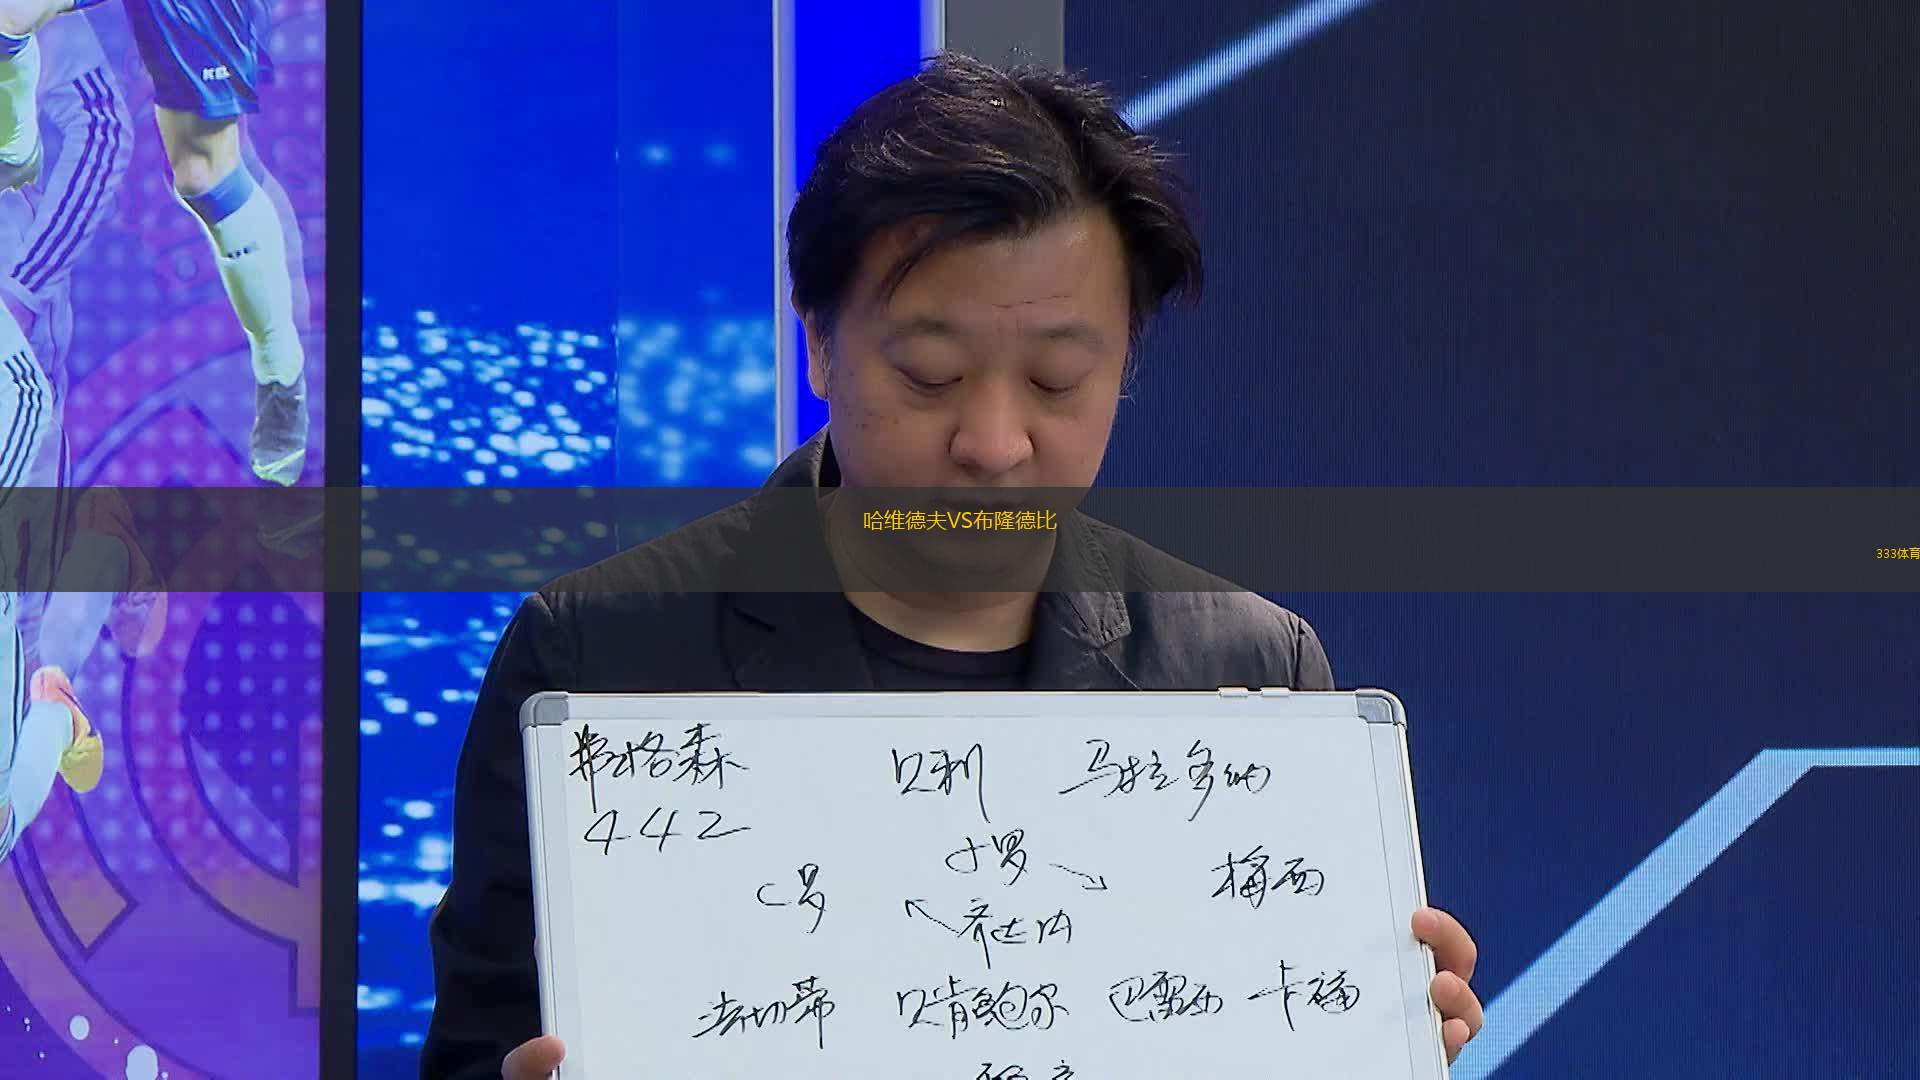 哈维德夫VS布隆德比
333体育
弗格森
贝利 马拉多纳
442
小罗
C罗 梅西
齐达内
法切蒂 贝肯鲍尔 巴雷西 卡福